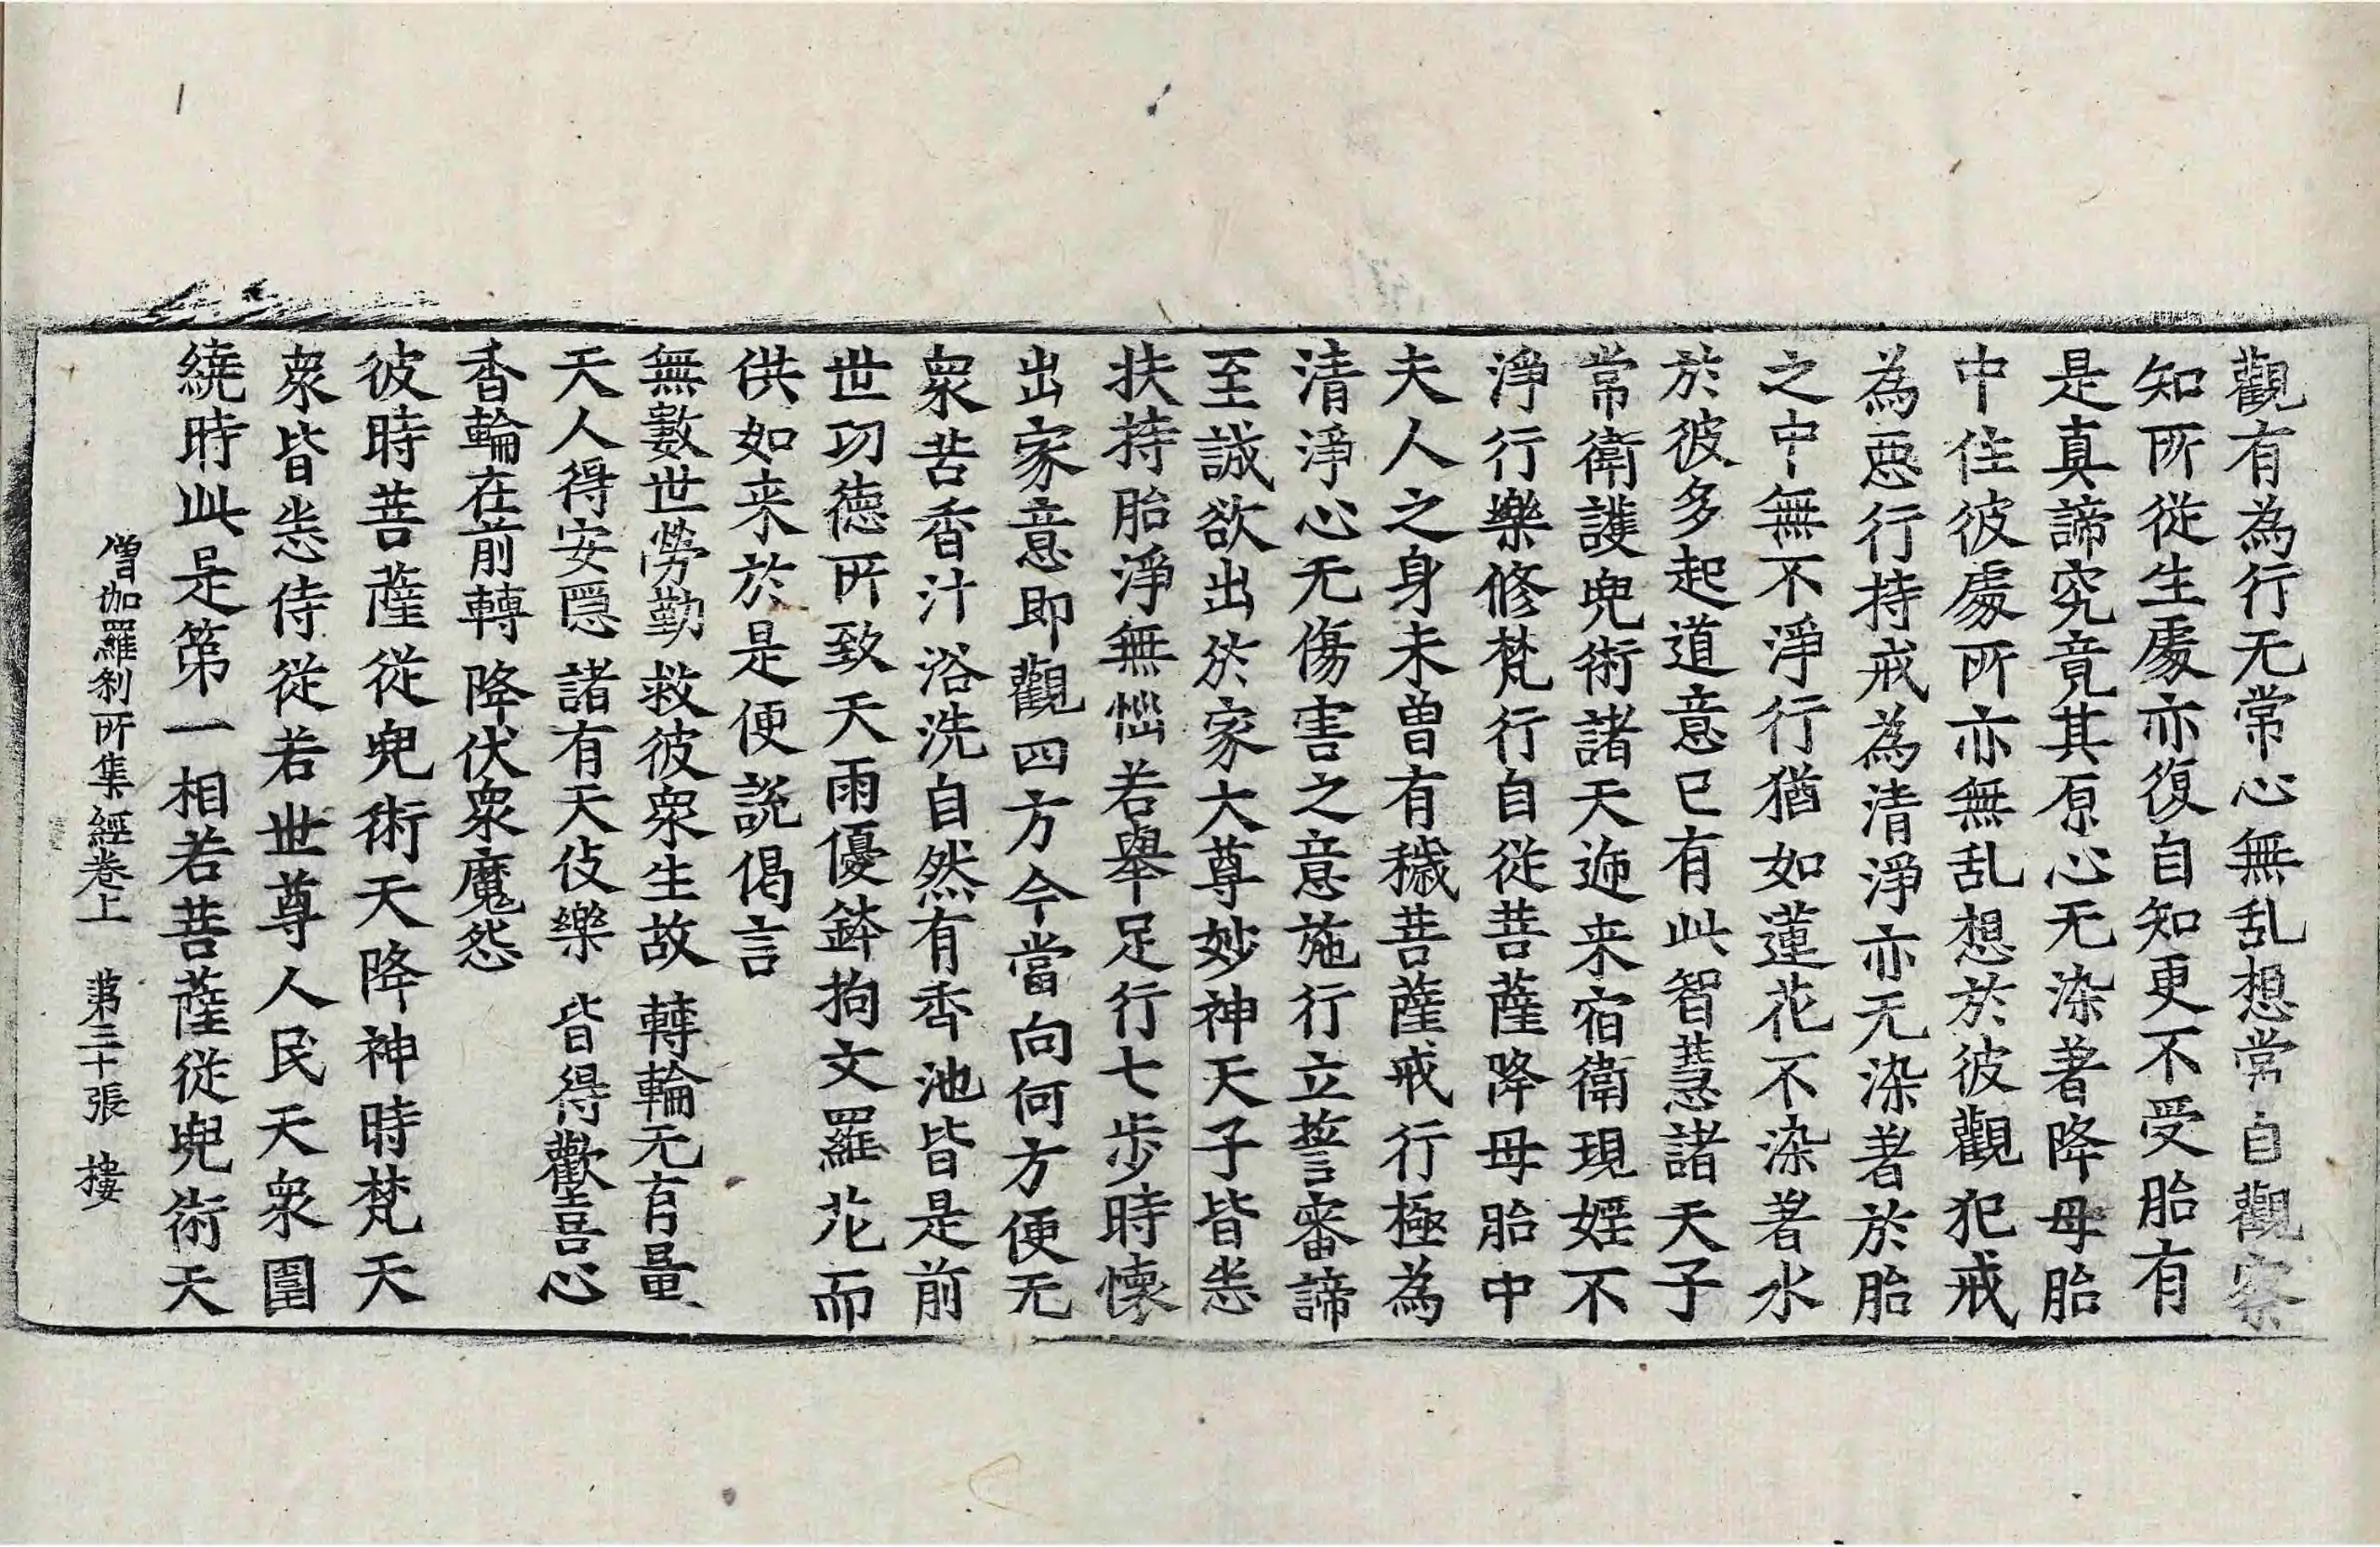 觀有為行无常心無乱想常自觀察
知所從生處亦復自知更不受胎有
是真諦究竟其原心无染著降母胎
中住彼處所亦無乱想於彼觀犯戒
為惡行持戒為清淨亦无染著於胎
之中無不淨行猶如蓮花不染著水
於彼多起道意已有此智慧諸天子
常衛護兜術諸天迊来宿衛現婬不
淨行樂修梵行自従菩薩降母胎中
夫人之身未曽有穢菩薩戒行極為
清淨心无傷害之意施行立誓審諦
至誠欲出於家大尊妙神天子皆悉
扶持胎淨無惱若舉足行七步時懷
出家意即觀四方今當向何方便无
衆苦香汁浴洗自然有香池皆是前
世功德所致天雨優鉢拘文羅花而
供如来於是便說偈言
無數世勞勤　救彼衆生故　轉輪无有量
天人得安隱　諸有天伎樂　皆得歡喜心
香輪在前轉　降伏衆魔怨
彼時菩薩從兜術天降神時梵天
衆皆悉侍從若世尊人民天衆圍
繞時此是第一相若菩薩從兜術天
僧伽羅刹所集經卷上　第三十張　樓